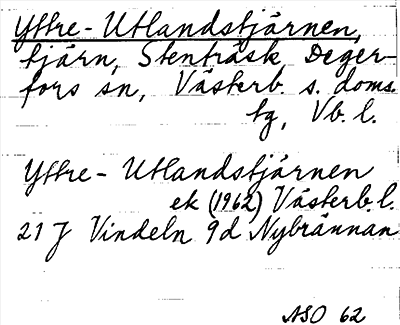 Yttre-Utlandstjärnen,
tjärn, Stenträsk Deger-
fors sn, Västerb. s. doms.
tg, Vb. l.
Yttre-Utlandstjärnen
ek (1962) Västerb. l.
21 J Vindeln 9d Nybrännan
ASO 62